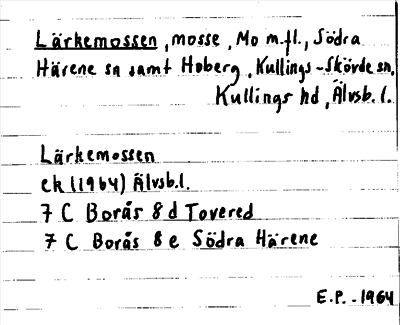 Lärkemossen, mosse, Mo m.fl., Södra
Härene sn samt Hoberg, Kullings-Skövde sn,
Kullings hd, Älvsb. l.
Lärkemossen
ek (1964) Älvsb.l.
7 C Borås 8 d Tovered
7 C Borås 8 e Södra Härene
E.P. - 1964